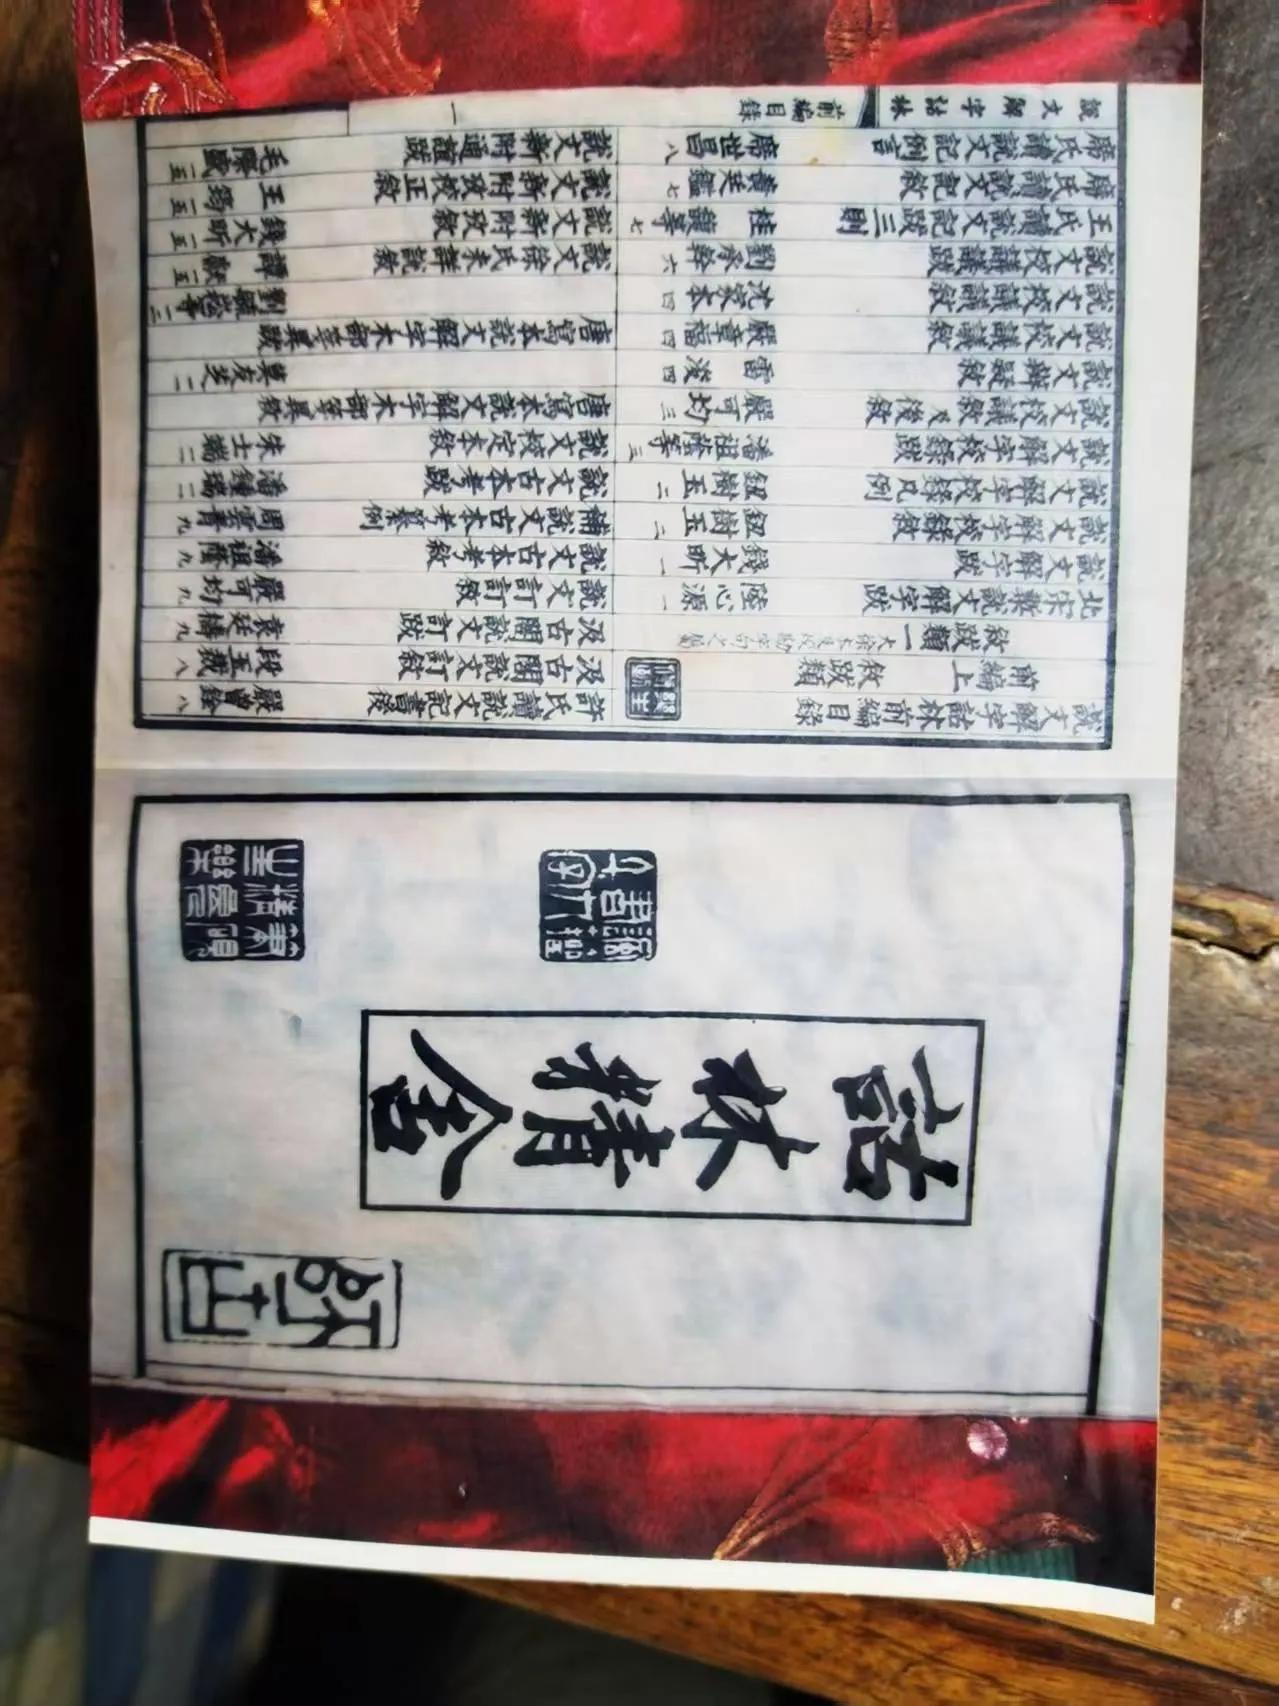 詁林精舍
說文解字詁林前編目錄
前編上 敘跋類
敘跋類一 大徐本及校勘字句之屬
北宋槧說文解字跋 陸心源 一
說文解字跋 錢大昕 一
說文解字校錄敘 鈕樹玉 二
說文解字校錄凡例 鈕樹玉 二
說文解字校錄跋 潘祖蔭等 三
說文校議敘及後敘 嚴可均 三
說文辨疑敘 雷浚 四
說文校議議敘 嚴章福 四
說文校議議敘 沈家本 四
說文校議議跋 劉承幹 六
王氏讀說文記跋三則 桂馥等 七
席氏讀說文記敘 黃廷鑑 七
席氏讀說文記例言 席世昌 八
許氏讀說文記書後 嚴曾銓 八
汲古閣說文訂敘 段玉裁 八
汲古閣說文訂跋 袁廷檮 九
說文訂訂敘 嚴可均 九
說文古本考敘 潘祖蔭 九
補說文古本考纂例 周雲青 九
說文古本考跋 潘鍾瑞 一一
說文校定本敘 朱士端 一一
唐寫本說文解字木部箋異敘
莫友芝 一一
唐寫本說文解字木部箋異跋
劉毓崧等 一三
說文徐氏未詳說敘 譚獻 一五
說文新附攷敘 錢大昕 一五
說文新附攷校正敘 王筠 一五
說文新附通誼跋 毛際盛 一五
說文解字詁林 前編目錄 一